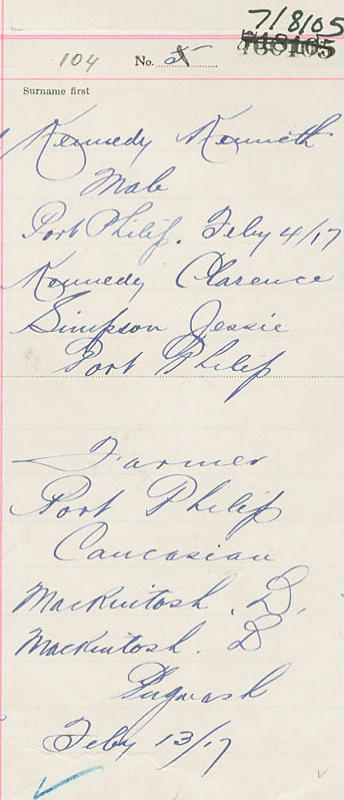 7/8/05
104 No. 5
Surname first
Kennedy Kenneth
Male
Port Philip. Feby 4/17
Kennedy Clarence
Simpson Jessie
Port Philip
Farmer
Port Philip
Caucasian
Mackintosh. D.
Mackintosh. D
Pugwash
Feby 13/17